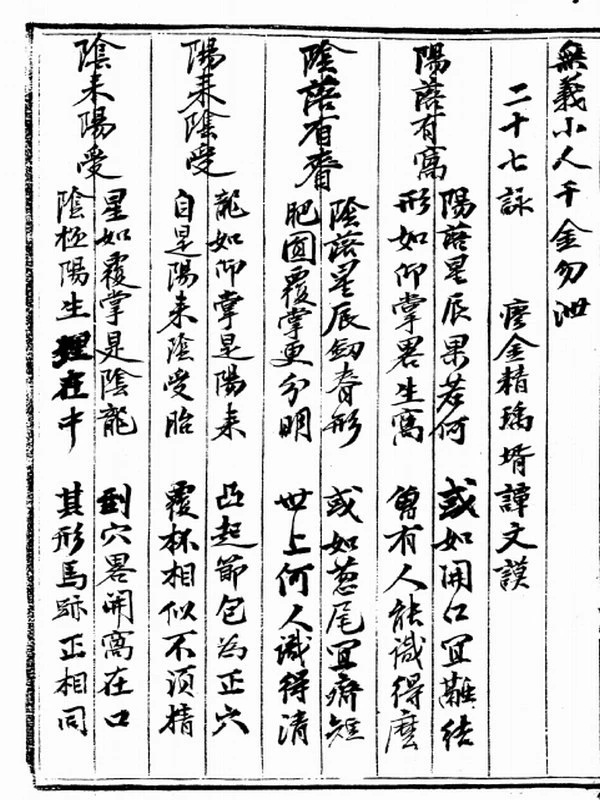 無義小人千金勿泄
二十七詠 廖金精瑀壻譚文謨
陽落有窩
陽落星辰果若何 或如開口宜難結
形如仰掌畧生窩 曾有人能識得麽
陰落有脊
陰落星辰劔脊形 或如葱尾宜齊短
肥圓覆掌更分明 世上何人識得清
陽來陰受
龍如仰掌是陽來 凸起節包為正穴
自是陽來陰受胎 覆杯相似不須猜
陰来陽受
星如覆掌是陰龍 到穴畧開窩在口
陰極陽生在中 其形馬跡正相同